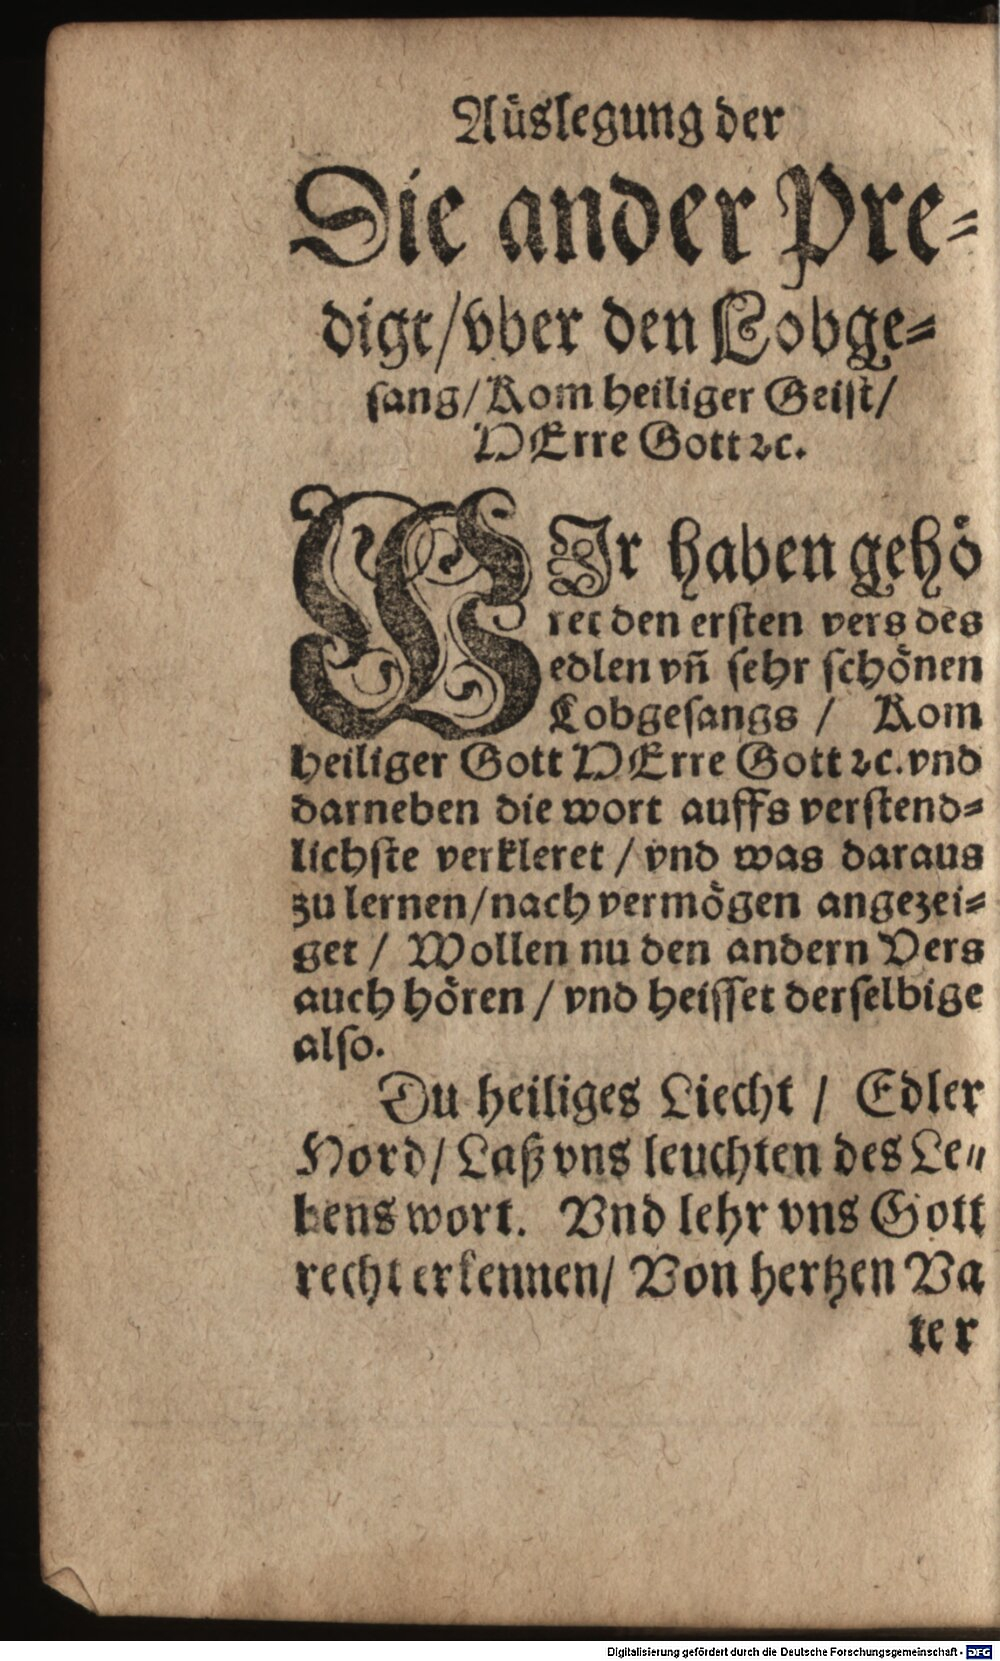 Auͤslegung der
Die ander Pre⸗
digt/vber den Lobge⸗
sang/Kom heiliger Geist/
HErre Gott ⁊c.
WIr haben gehoͤ
ret den ersten vers des
edlen vñ sehr schoͤnen
Lobgesangs / Kom
heiliger Gott HErre Gott ⁊c. vnd
darneben die wort auffs verstend⸗
lichste verkleret / vnd was daraus
zu lernen/nach vermoͤgen angezei⸗
get / Wollen nu den andern Vers
auch hoͤren / vnd heisset derselbige
also.
Du heiliges Liecht / Edler
Hord/ Laß vns leuchten des Le⸗
bens wort. Vnd lehr vns Gott
recht erkennen/ Von hertzen Va
ter
Digitalisierung gefördert durch die Deutsche Forschungsgemeinschaft - DFG